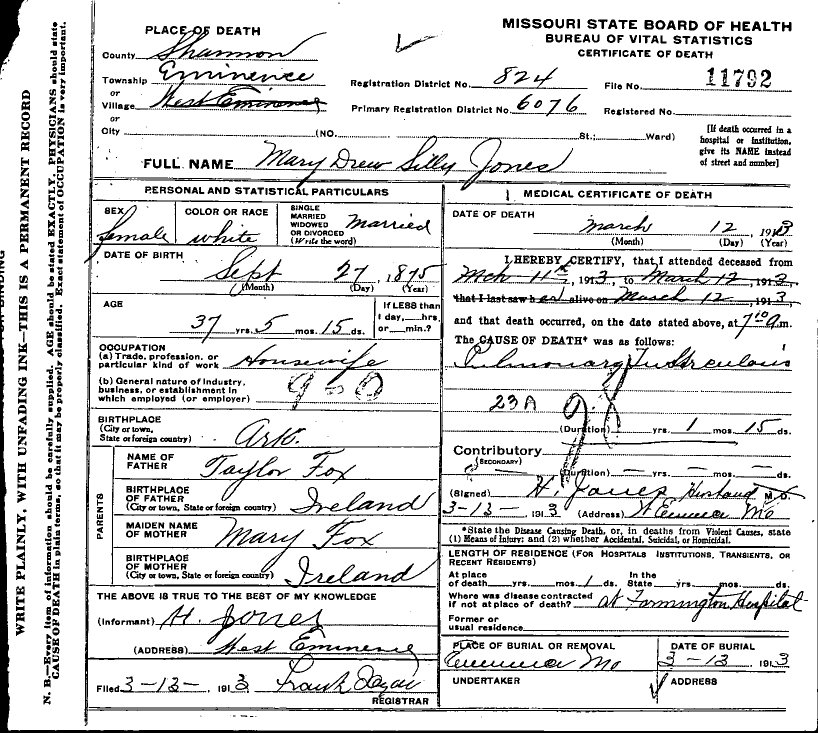 MISSOURI STATE BOARD OF HEALTH
BUREAU OF VITAL STATISTICS
CERTIFICATE OF DEATH
PLACE OF DEATH
County Shannon
Township Eminence
or
Village West Eminence
or
City (NO. St.; Ward)
Registration District No. 824 File No. 11792
Primary Registration District No. 6076 Registered No.
[If death occurred in a
hospital or institution,
give its NAME instead
of street and number]
FULL NAME Mary Drew Jones
PERSONAL AND STATISTICAL PARTICULARS
SEX
female
COLOR OR RACE
white
SINGLE
MARRIED
WIDOWED
OR DIVORCED
(Write the word)
Married
DATE OF BIRTH
Sept 27, 1875
(Month) (Day) (Year)
AGE
37 yrs. 5 mos. 15 ds.
If LESS than
1 day,....hrs.
or....min.?
OCCUPATION
(a) Trade, profession, or
particular kind of work Housewife
(b) General nature of industry,
business, or establishment in
which employed (or employer)
BIRTHPLACE
(City or town,
State or foreign country) Ark.
PARENTS
NAME OF
FATHER Taylor Fox
BIRTHPLACE
OF FATHER
(City or town, State or foreign country) Ireland
MAIDEN NAME
OF MOTHER Mary Fox
BIRTHPLACE
OF MOTHER
(City or town, State or foreign country) Ireland
THE ABOVE IS TRUE TO THE BEST OF MY KNOWLEDGE
(Informant) H. Jones
(ADDRESS) West Eminence
Filed 3-13-, 1913 Frank
REGISTRAR
MEDICAL CERTIFICATE OF DEATH
DATE OF DEATH
March 12, 1913
(Month) (Day) (Year)
I HEREBY CERTIFY, that I attended deceased from
Mch 11th, 1913, to March 12, 1913,
that I last saw her alive on March 12, 1913,
and that death occurred, on the date stated above, at 7 10 a.m.
The CAUSE OF DEATH* was as follows:
Pulmonary Tuberculosis
23 A 98
(Duration) yrs. 1 mos. 15 ds.
Contributory
(SECONDARY)
(Duration) — yrs. — mos. — ds.
(Signed) H. Jones Husband M.D.
3-13-, 1913 (Address) Mo
*State the Disease Causing Death, or, in deaths from Violent Causes, state
(1) Means of Injury; and (2) whether Accidental, Suicidal, or Homicidal.
LENGTH OF RESIDENCE (FOR HOSPITALS INSTITUTIONS, TRANSIENTS, OR
RECENT RESIDENTS)
At place
of death yrs. mos. 1 ds.
In the
State yrs. mos. ds.
Where was disease contracted
if not at place of death? at Farmington Hospital
Former or
usual residence
PLACE OF BURIAL OR REMOVAL
Mo
DATE OF BURIAL
3-13, 1913
UNDERTAKER
ADDRESS
WRITE PLAINLY, WITH UNFADING INK—THIS IS A PERMANENT RECORD
N. B.—Every item of information should be carefully supplied. AGE should be stated EXACTLY. PHYSICIANS should state
CAUSE OF DEATH in plain terms, so that it may be properly classified. Exact statement of OCCUPATION is very important.